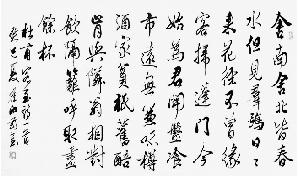 舍南舍北皆春
水但見羣鷗日日
來花徑不曾緣
客掃蓬門今
始為君開盤飧
市遠無兼味樽
酒家貧祇舊醅
肯與隣翁相對
飲隔籬呼取盡
餘杯
杜甫
癸巳夏